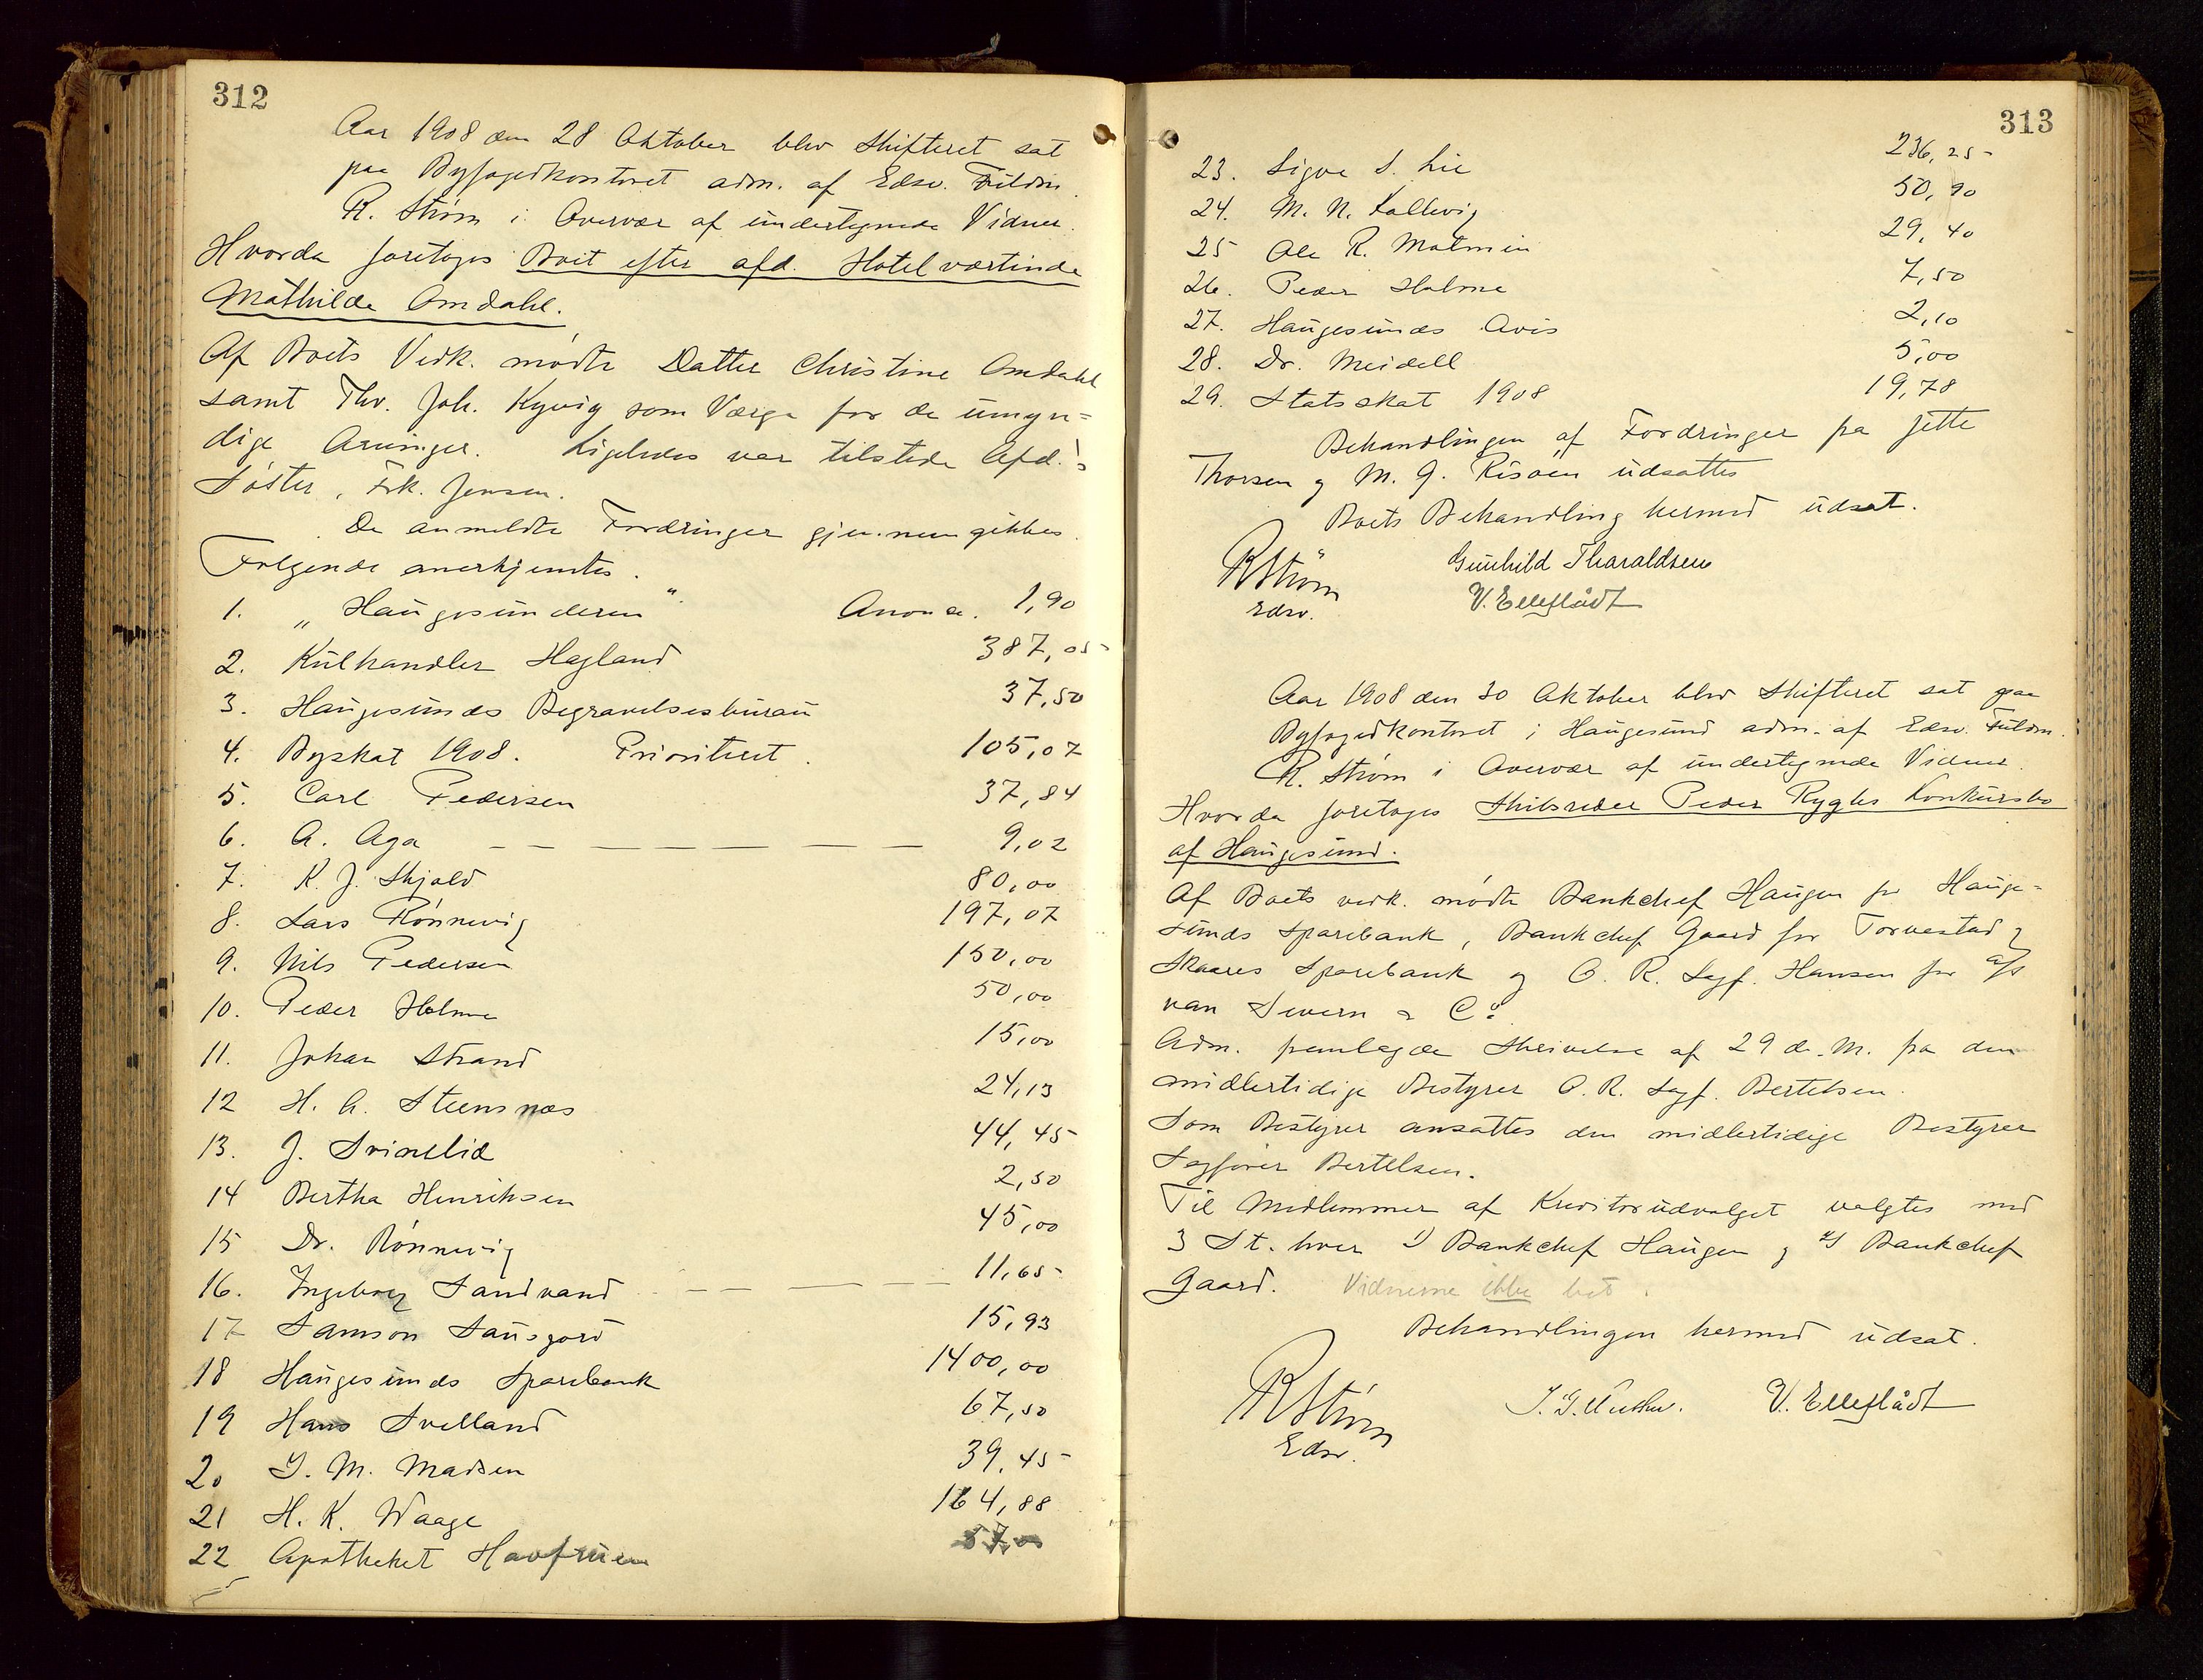 312
Aar 1908 den 28 Oktober blev Skifteret sat
paa Byfogedkontoret adm. af Edsv. Fuldm.
R. Strøm i Overvær af undertegnede Vidner.
Hvorda foretoges Boet efter afd. Hotelværtinde
Mathilde Omdahl.
Af Boets Vedk. mødte Datter Christine Omdahl
samt Thv. Joh. Kyvig som Værge for de umyn=
dige Arvinger. Ligeledes var tilstede Afd.'s
Søster, Frk. Jensen.
De anmeldte Fordringer gjennemgikkes.
Følgende anerkjendtes.
1. „Haugesunderen" Anonce. 1,90
2. Kulhandler Hagland 387,05
3. Haugesunds Begravelsesbureau 37,50
4. Byskat 1908. Prioritet. 105,07
5. Carl Pedersen 37,84
6. A. Aga 9,02
7. K. J. Skjold 80,00
8. Lars Rønnevig 197,07
9. Nils Pedersen 150,00
10. Peder Holme 50,00
11. Johan Strand 15,00
12 H. A. Steensnæs 24,13
13. J. Svinelid 44,45
14 Bertha Henriksen 2,50
15 Dr. Rønnevig 45,00
16. Ingeborg Sandvand 11,65
17 Samson Sausgard 15,93
18 Haugesunds Sparebank 1400,00
19 Hans Svelland 67,50
20 J. M. Madsen 39,45
21 H. K. Waage 164,88
22 Apotheket Havfruen 57,00
313
23. Sigva S. Lie 236,25
24. M. N. Kallevig 50,90
25 Ole R. Matmin 29,40
26. Peder Holme 7,50
27. Haugesunds Avis 2,10
28. Dr. Meidell 5,00
29. Statsskat 1908 19,78
Behandlingen af Fordringer fra Jette
Thorsen og M. G. Risøen udsattes
Boets Behandling hermed udsat.
RStrøm Gunhild Tharaldsen
Edsv. V. Elleflådt
Aar 1908 den 30 Oktober blev Skifteret sat paa
Byfogedkontoret i Haugesund adm. af Edsv. Fuldm.
R. Strøm i Overvær af undertegnede Vidner.
Hvorda foretoges Skibsreder Peder Ryghs Konkursbo
af Haugesund.
Af Boets vedk. mødte Bankchef Haugen for Hauge=
sunds Sparebank, Bankchef Gaard for Torvestad &
Skaares Sparebank og O. R. Sagf. Hansen for A/S
van Severn & Co.
Adm. fremlagde Skrivelse af 29 d. M. fra den
midlertidige Bestyrer O. R. Sagf. Bertelsen.
Som Bestyrer ansattes den midlertidige Bestyrer
Sagfører Bertelsen.
Til Medlemmer af Kreditorudvalget valgtes med
3 St. hver 1) Bankchef Haugen og 2) Bankchef
Gaard. Vidnerne ikke bet.
Behandlingen hermed udsat.
RStrøm V. Elleflådt
Edsv.